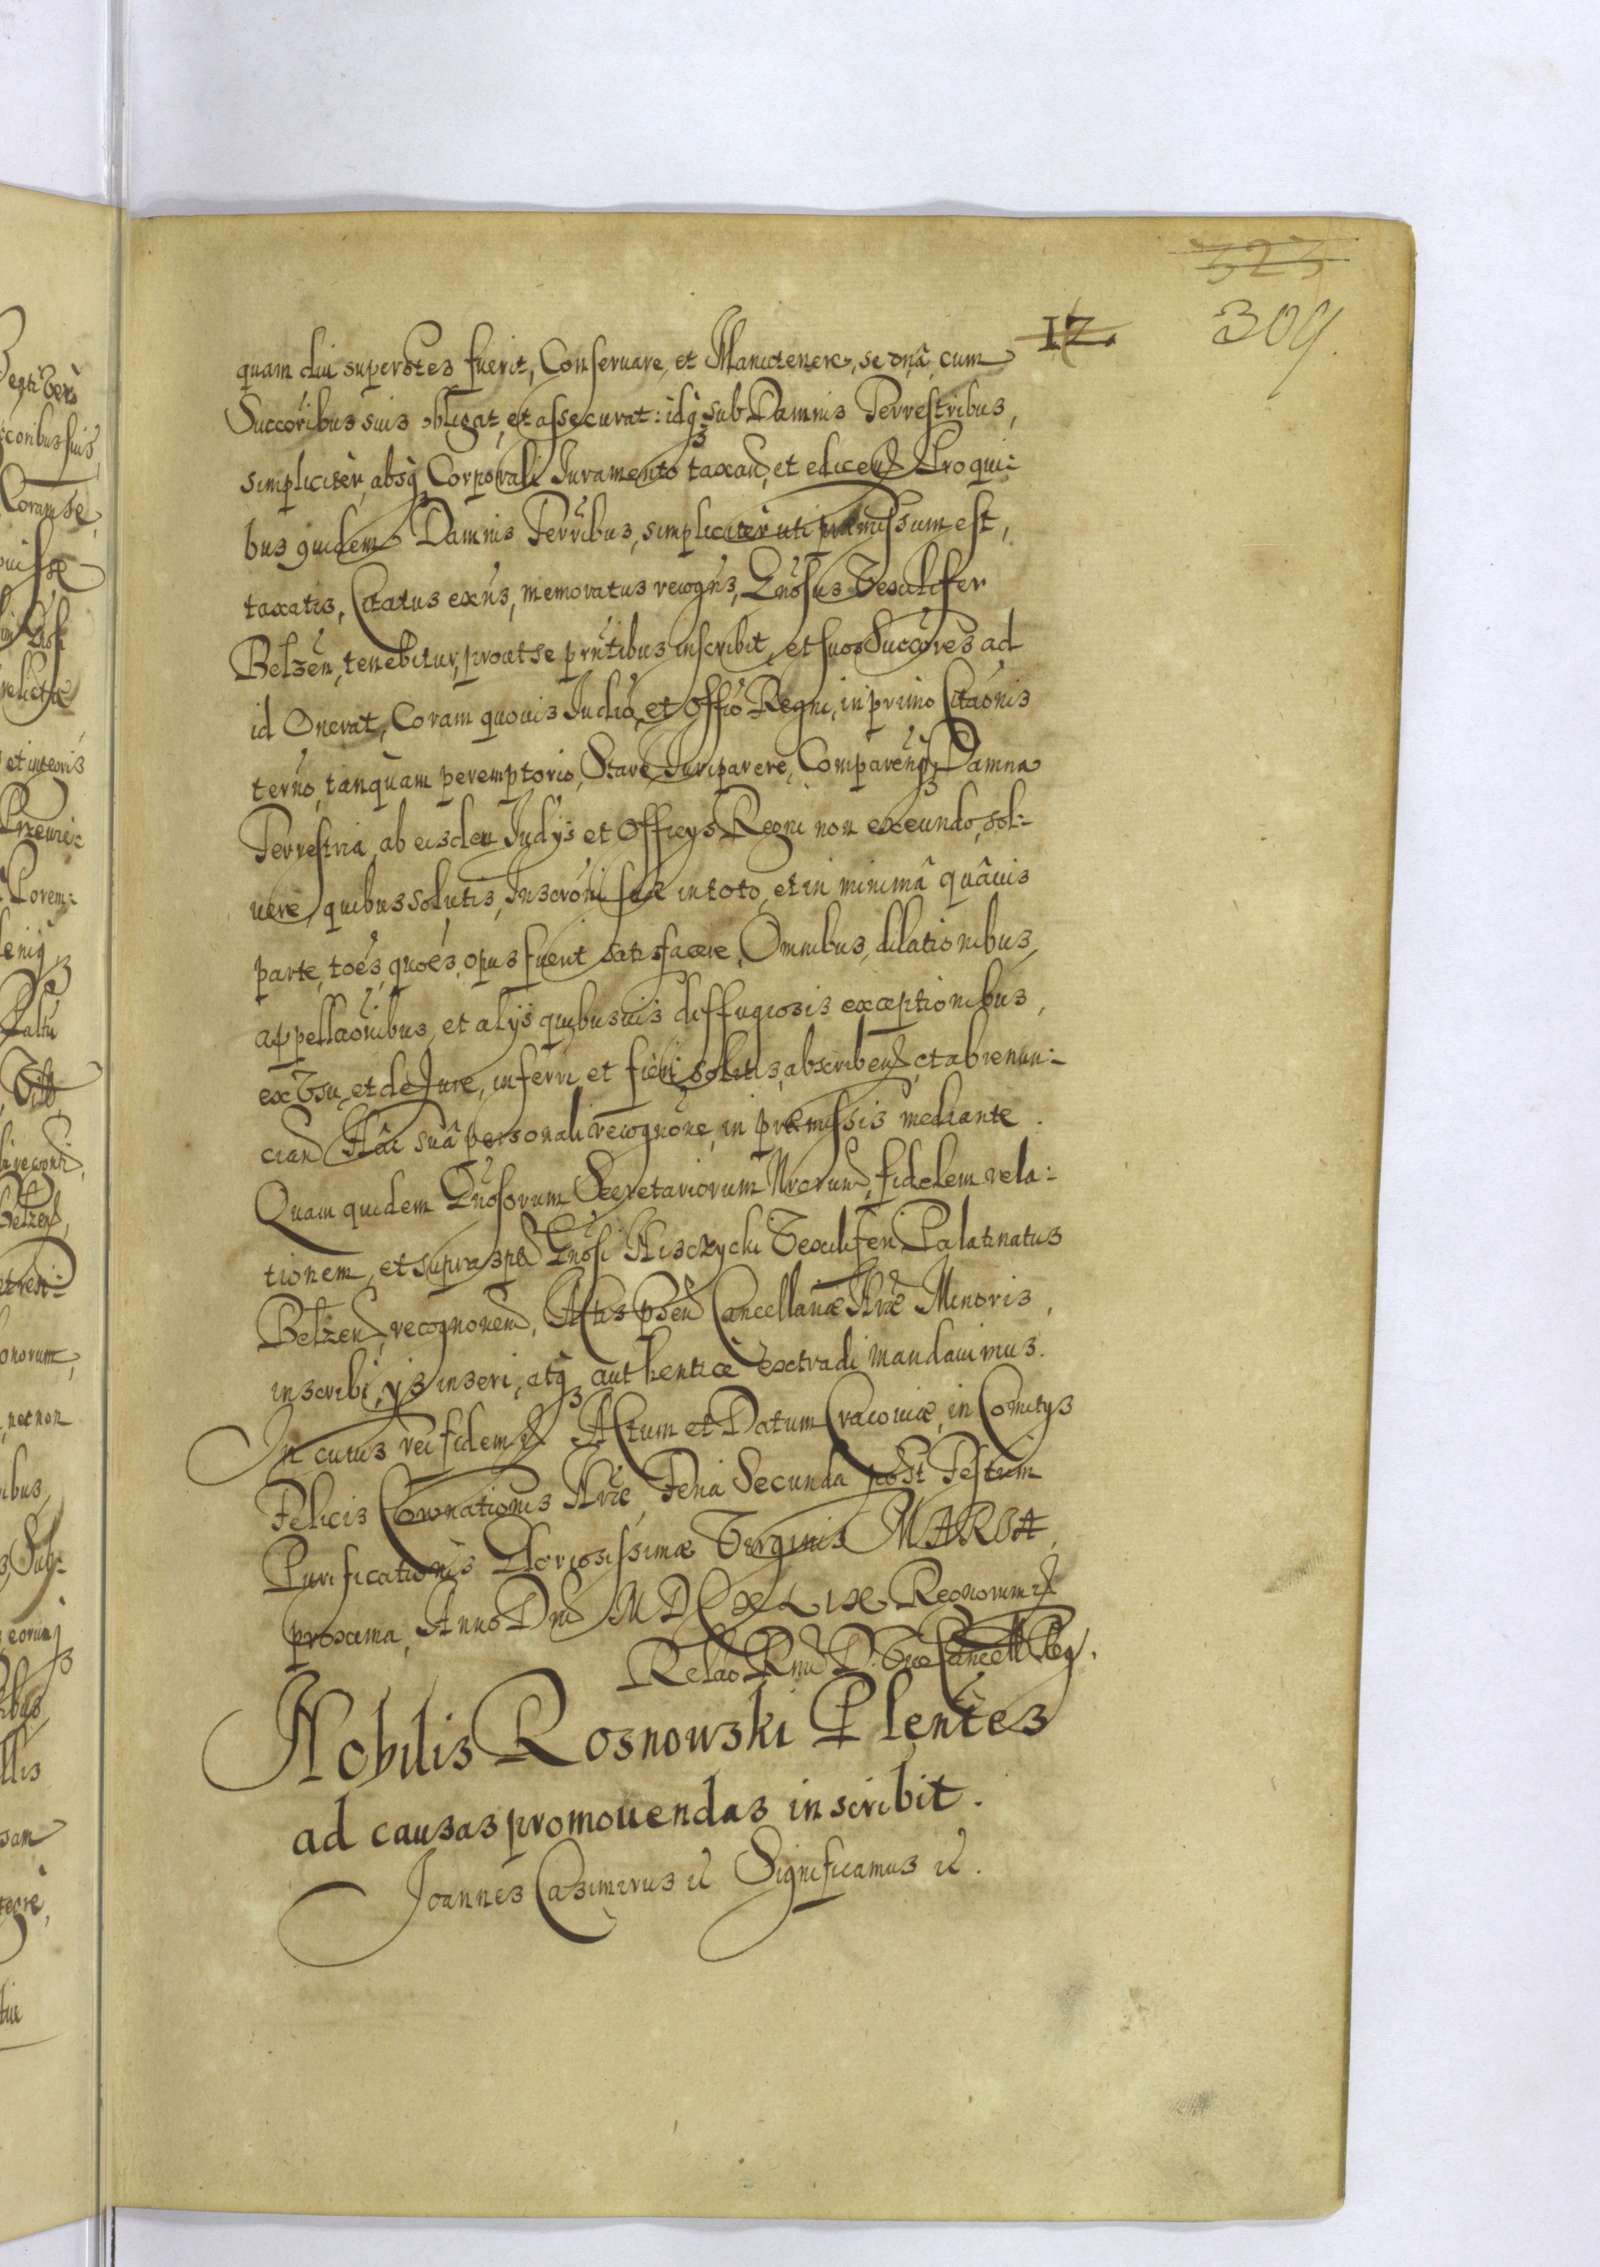 323
309.
12.
quam diu superstes fuerit, Conseruare, et Manutenere, se dnâ, cum
Succoribus suis obligat, et assecurat: idq3 sub Damnis Terrestribus,
simpliciter, absq3 Corporali Iuramento taxan, et edicen Pro qui:
bus quidem Damnis Terribus, simpliciter uti præmissum est,
taxatis, Citatus exns, memoratus recogns, Gnosus Vexilifer
Belzen, tenebitur, prout se prntibus inscribit, et suos Succores ad
id Onerat, Coram quouis Iudio, et Offio Regni, in primo Citaonis
terno, tanquam peremptorio, Stare Iuriparere, Comparenq3 Damna
Terrestria, ab eisdem Iudys et Offieys Regni non exeundo, sol:
uere, quibus solutis, Inscroni suæ in toto, et in minimâ quâuis
parte, toes, quoes, opus fuerit satisfacere, Omnibus, dilationibus,
appellaonibus, et alys quibusuis diffugiosis exceptionibus,
ex Vsu, et de Iure, inferri, et fieri solitis, abscriben, et abrenun:
cian Hâc suâ personali recognone, in præmissis mediante.
Quam quidem Gnosorum Secretariorum Nrorum, fidelem rela:
tionem, et supra sptt Gnosi Miaczycki Vexiliferi Palatinatus
Belzen, recognonem, Actis psen Cancellariæ Nræ Minoris,
inscribi, ys inseri, atq3 authentice extradi mandauimus.
In cuius rei fidem Actum et Datum Cracouiæ, in Comitys
Felicis Coronationis Nræ, Feria Secunda post Festum
Purificationis Gloriosissimæ Virginis MARIÆ,
proxima, Anno Dni MDCXLIX Regnorum
Relao Rmi D. Vice Cancell Reg.
Nobilis Rosnowski Plentes
ad causas promouendas inscribit.
Joannes Casimirus Significamus